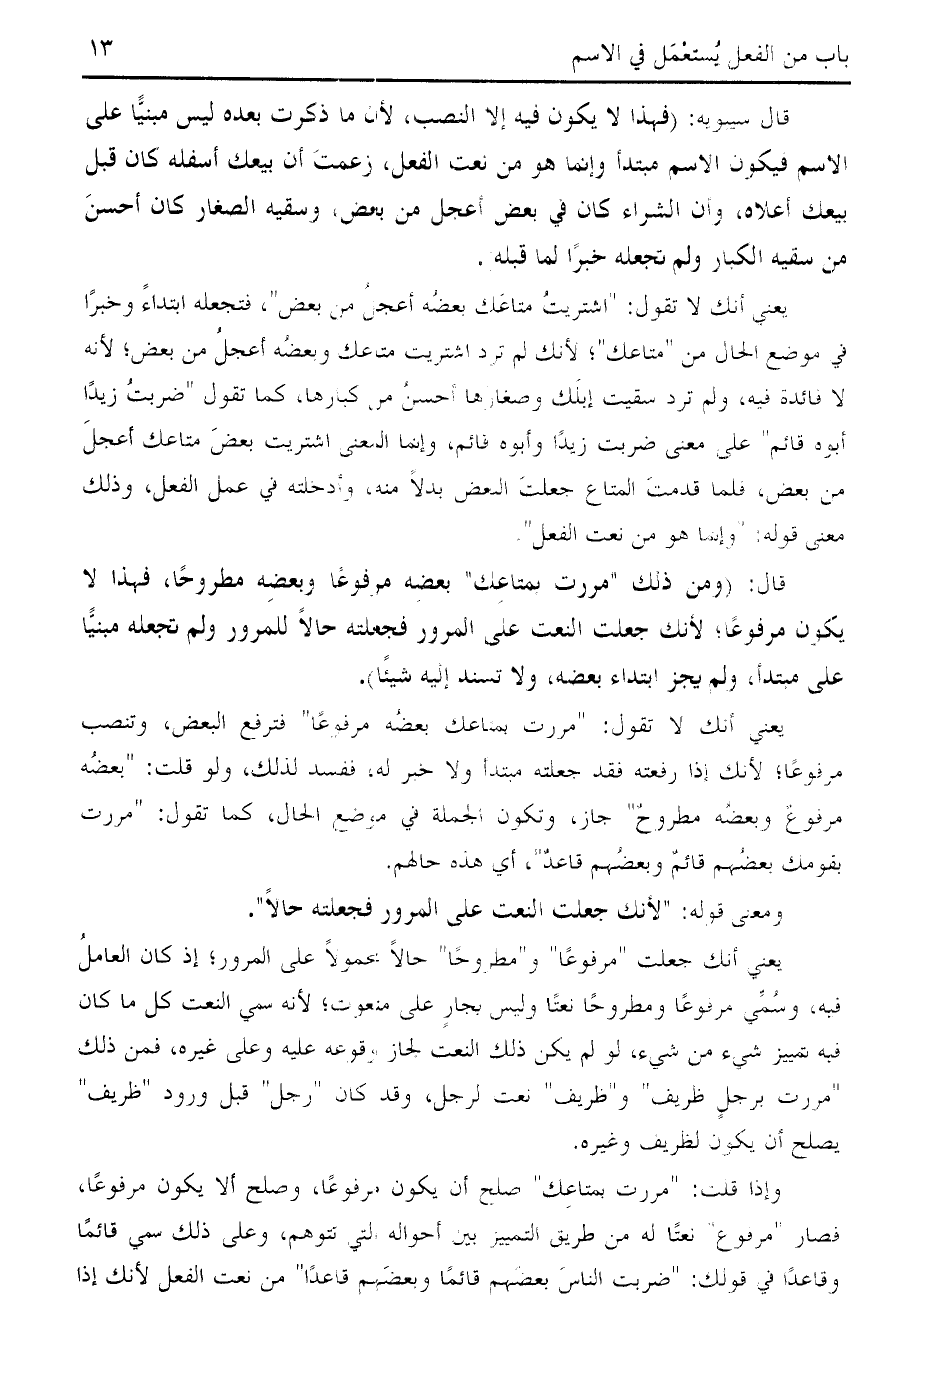 باب من الفعل يُستعْمَل في الاسم ١٣
قال سيبويه: (فهذا لا يكون فيه إلا النصب، لأن ما ذكرت بعده ليس مبنيًّا على
الاسم فيكون الاسم مبتدأ وإنما هو من نعت الفعل، زعمتَ أن بيعك أسفله كان قبل
بيعك أعلاه، وأن الشراء كان في بعض أعجل من بعض، وسقيه الصغار كان أحسنَ
من سقيه الكبار ولم تجعله خبرًا لما قبله.
يعني أنك لا تقول: "اشتريتُ متاعَك بعضُه أعجلُ من بعض"، فتجعله ابتداءً وخبرًا
في موضع الحال من "متاعك"؛ لأنك لم ترد اشتريت متاعك وبعضُه أعجلُ من بعض؛ لأنه
لا فائدة فيه، ولم ترد سقيت إبلَك وصغارها أحسنُ من كبارها، كما تقول "ضربتُ زيدًا
أبوه قائم" على معنى ضربت زيدًا وأبوه قائم، وإنما المعنى اشتريت بعضَ متاعك أعجلَ
من بعض، فلما قدمتَ المتاع جعلتَ البعض بدلاً منه، وأدخلته في عمل الفعل، وذلك
معنى قوله: "وإنما هو من نعت الفعل".
قال: (ومن ذلك "مررت بمتاعك" بعضِه مرفوعًا وبعضِه مطروحًا، فهذا لا
يكون مرفوعًا؛ لأنك جعلت النعت على المرور فجعلته حالاً للمرور ولم تجعله مبنيًّا
على مبتدأ، ولم يجز ابتداء بعضه، ولا تسند إليه شيئًا).
يعني أنك لا تقول: "مررت بمتاعك بعضُه مرفوعًا" فترفع البعض، وتنصب
مرفوعًا؛ لأنك إذا رفعته فقد جعلته مبتدأ ولا خبر له، ففسد لذلك، ولو قلت: "بعضُه
مرفوعٌ وبعضُه مطروحٌ" جاز، وتكون الجملة في موضع الحال، كما تقول: "مررت
بقومك بعضُهم قائمٌ وبعضُهم قاعدٌ"، أي هذه حالهم.
ومعنى قوله: "لأنك جعلت النعت على المرور فجعلته حالاً".
يعني أنك جعلت "مرفوعًا" و"مطروحًا" حالاً محمولاً على المرور؛ إذ كان العاملُ
فيه، وسُمِّي مرفوعًا ومطروحًا نعتًا وليس بجارٍ على منعوت؛ لأنه سمي النعت كل ما كان
فيه تمييز شيء من شيء، لو لم يكن ذلك النعت لجاز وقوعه عليه وعلى غيره، فمن ذلك
"مررت برجلٍ ظريف" و"ظريف" نعت لرجل، وقد كان "رجل" قبل ورود "ظريف"
يصلح أن يكون لظريف وغيره.
وإذا قلت: "مررت بمتاعك" صلح أن يكون مرفوعًا، وصلح ألا يكون مرفوعًا،
فصار "مرفوع" نعتًا له من طريق التمييز بين أحواله التي تتوهم، وعلى ذلك سمي قائمًا
وقاعدًا في قولك: "ضربت الناسَ بعضَهم قائمًا وبعضَهم قاعدًا" من نعت الفعل لأنك إذا